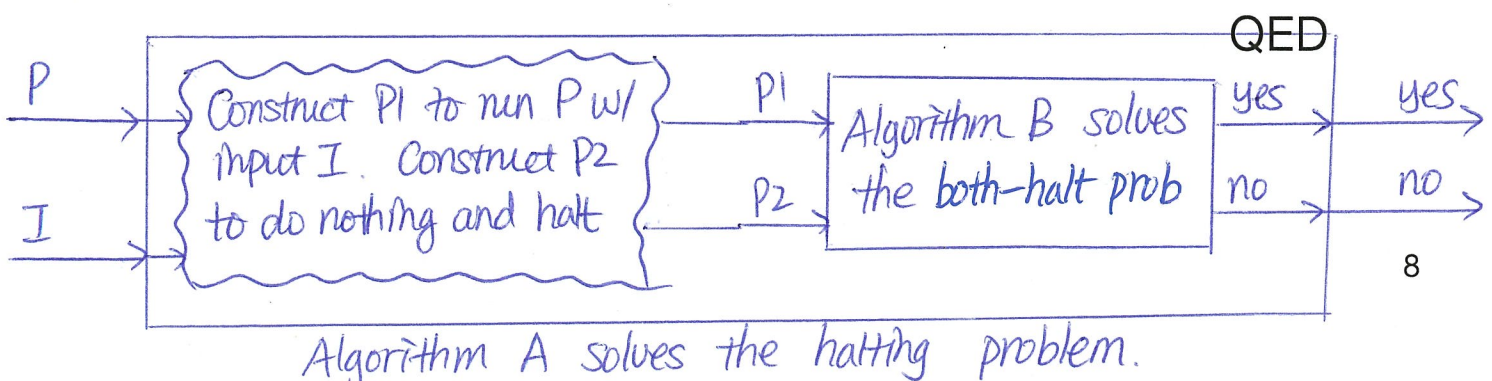 QED
P
I
Construct P1 to run P w/
input I. Construct P2
to do nothing and halt
P1
P2
Algorithm B solves
the both-halt prob
yes
no
yes
no
8
Algorithm A solves the halting problem.